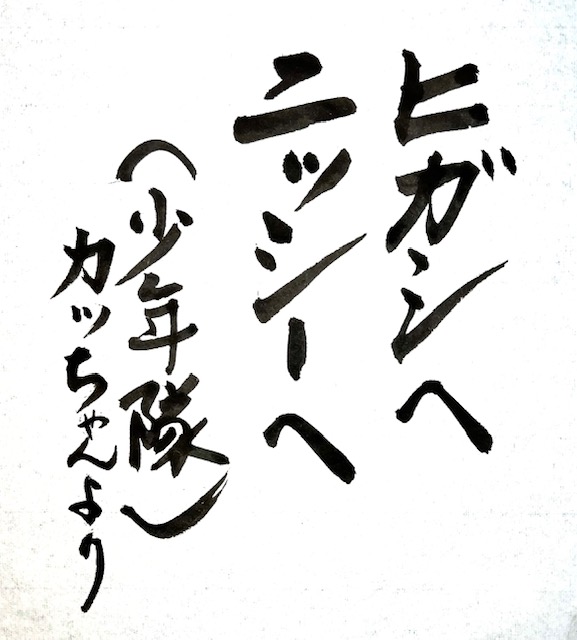 ヒガシへ
ニッシーへ
(少年隊)
カッちゃんより